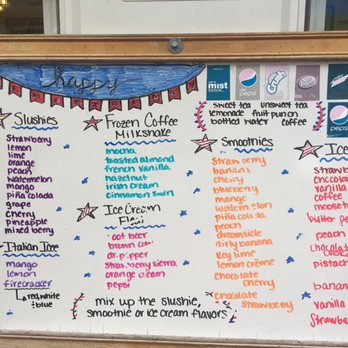 happy
mist
pepsi
pepsi
sweet tea unsweet tea
lemonade fruit punch
bottled water coffee
Slushies
strawberry
lemon
lime
orange
peach
watermelon
mango
piña colada
grape
cherry
pineapple
mixed berry
Italian Ice
mango
lemon
firecracker
red, white
+ blue
Frozen Coffee
Milkshake
mocha
toasted almond
french vanilla
hazelnut
irish cream
cinnamon
Ice Cream
root beer
brown cow
dr. pepper
strawberry sierra
orange cream
pepsi
mix up the slushie,
smoothie or ice cream flavors
Smoothies
strawberry
banana
cherry
blueberry
mango
watermelon
piña colada
peach
dreamsicle
dirty banana
key lime
lemon crème
chocolate
cherry
chocolate
strawberry
Ice
strawb
chocola
vanilla
coffee
moose t
butter pe
peach
chocolate
pistach
banana
vanilla
Strawbe